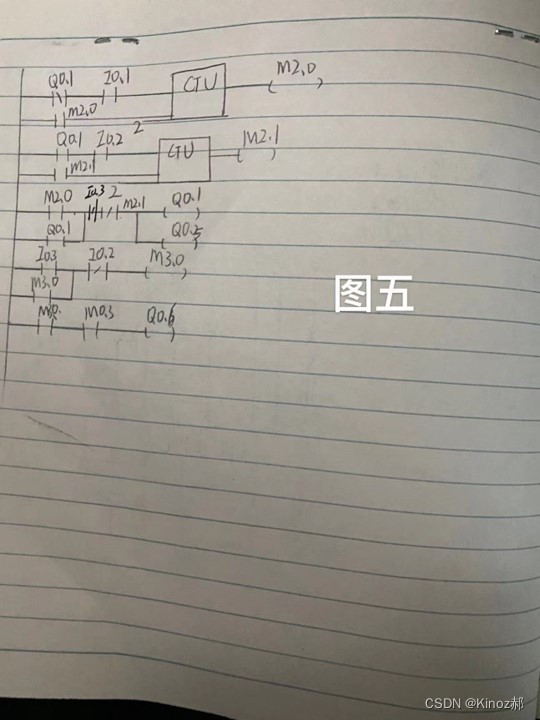 Q0.1 I0.1 CTU M2.0
M2.0
2
Q0.1 I0.2 CTU M2.1
M2.1
M2.0 I0.3 2 M2.1 Q0.1
Q0.1 Q0.5
I0.3 I0.2 M3.0
M3.0
图五
M0.3 Q0.6
CSDN @Kinoz郝